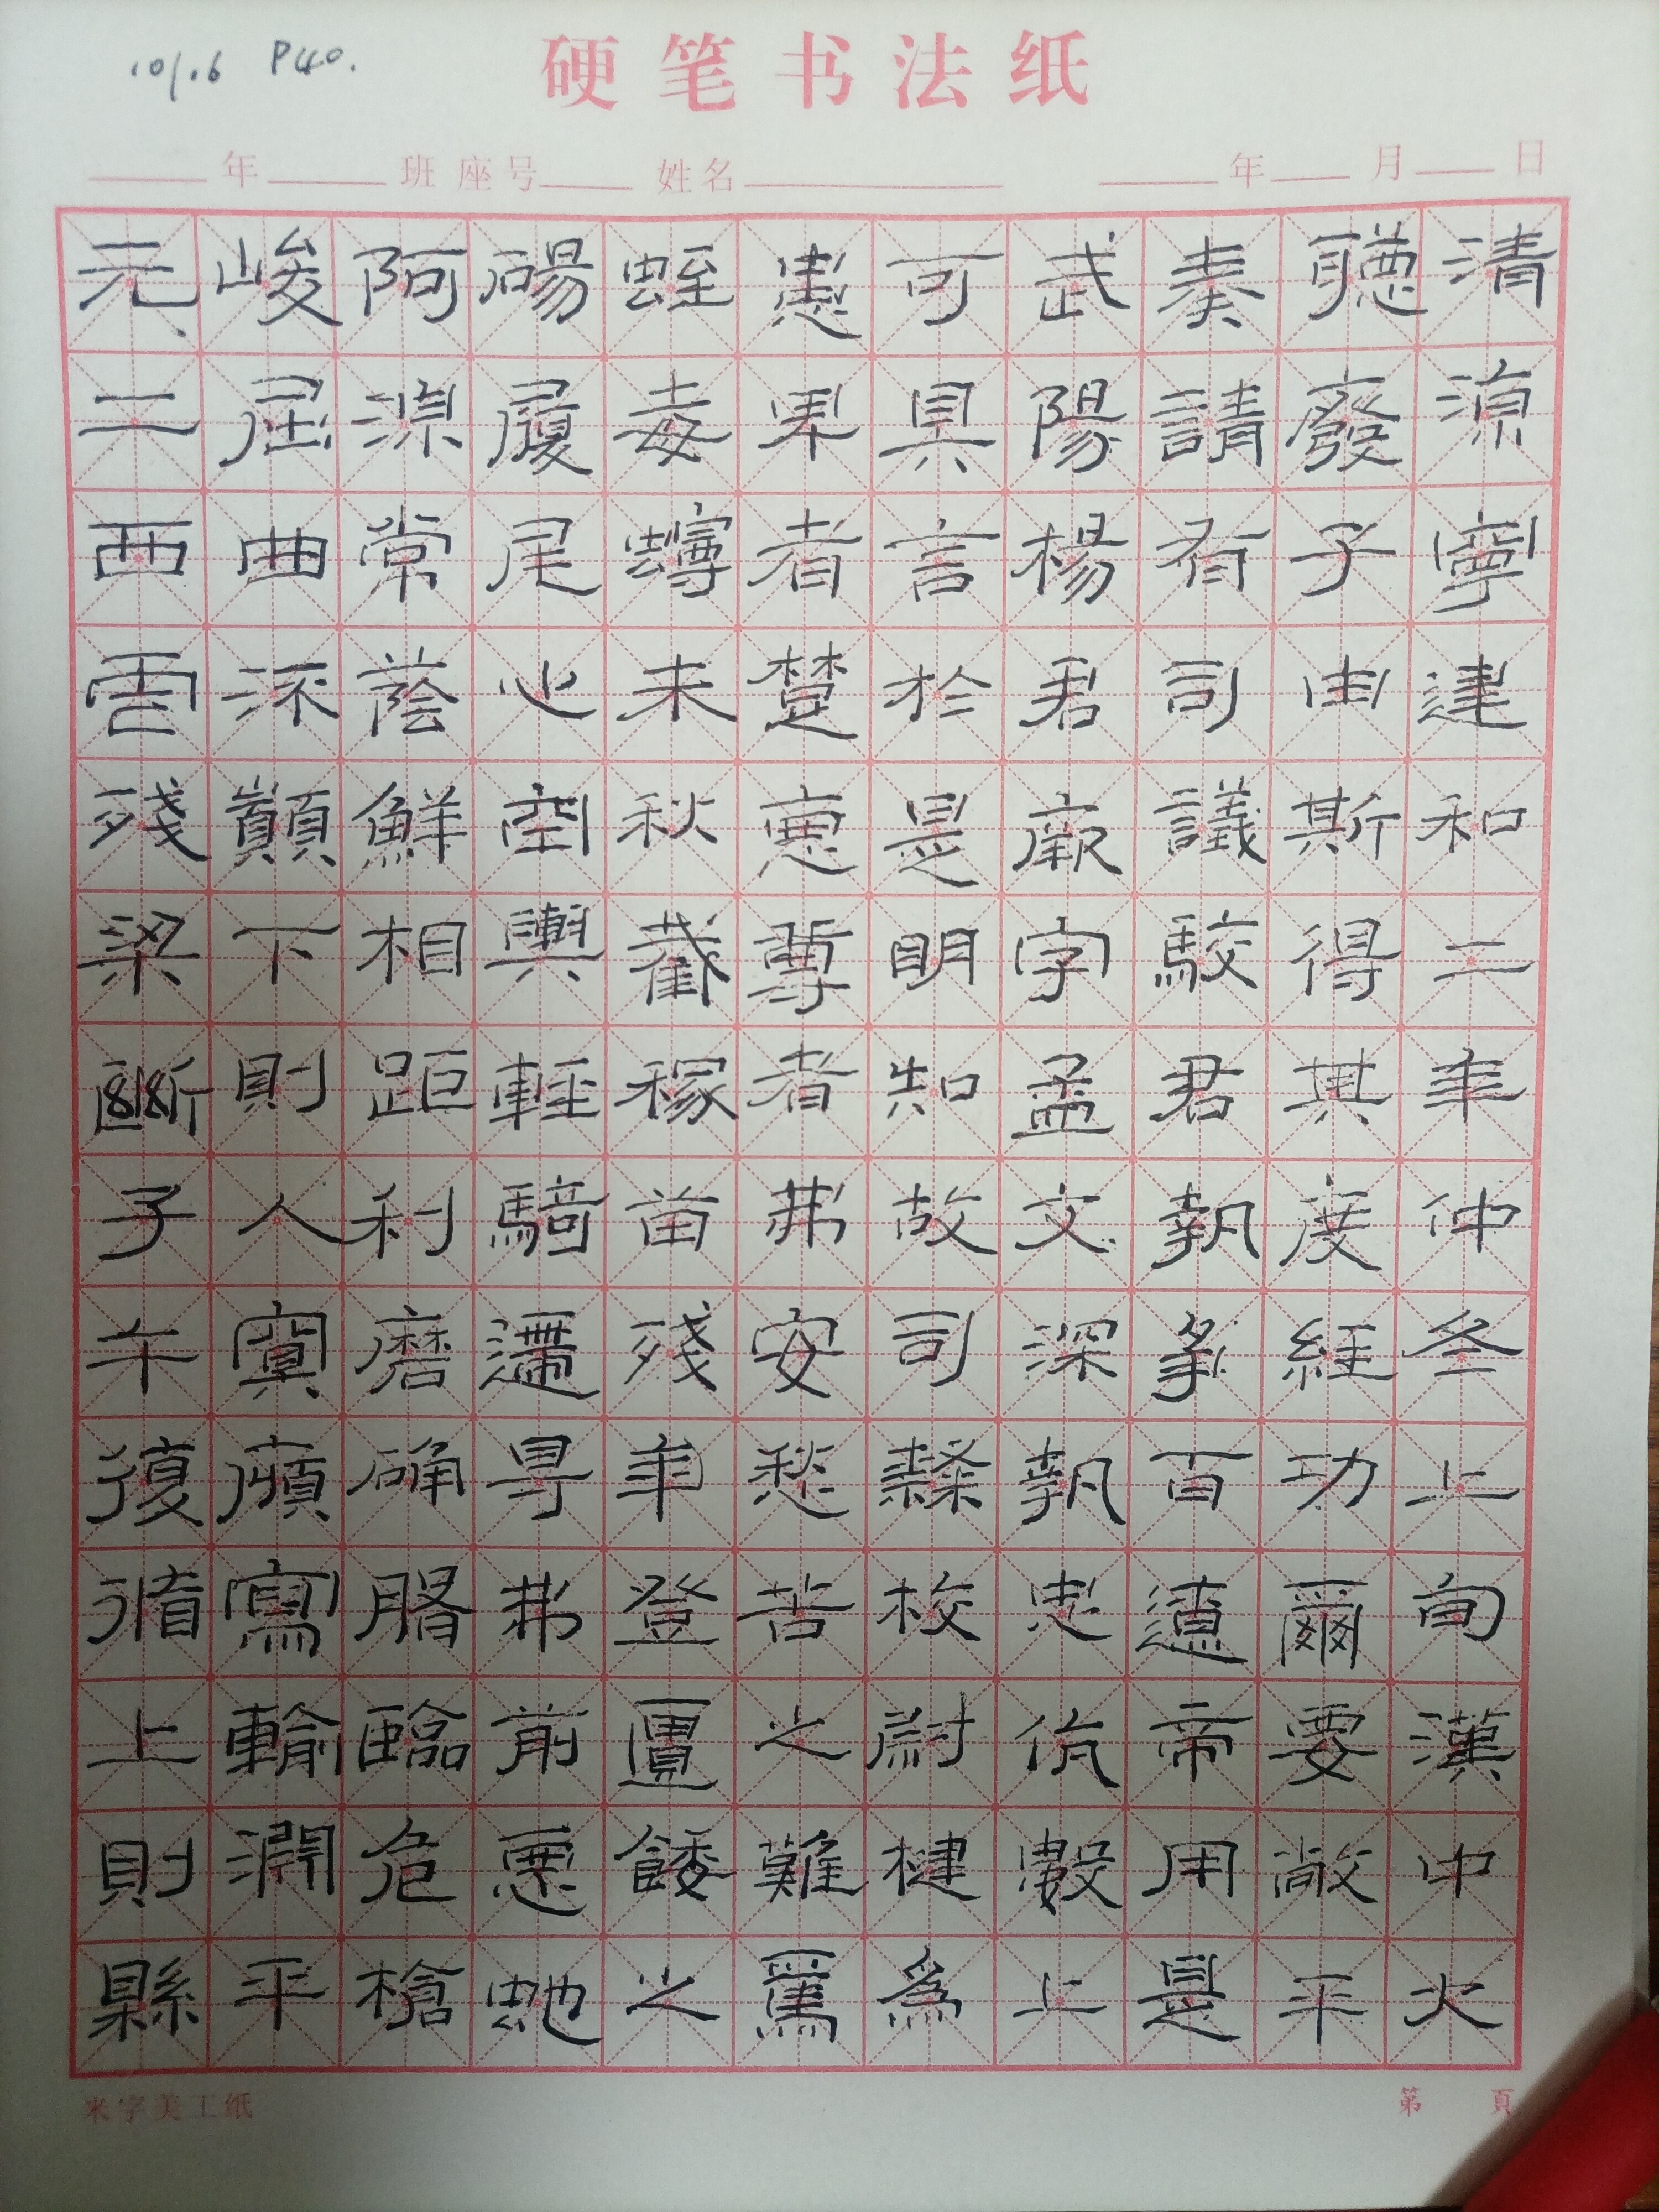 硬笔书法纸
P40.
年 班 座号 姓名 年 月 日
清涼寧建和二年仲冬上旬漢中大
聽廢子由斯得其度經功爾要敞平
奏請有司議駮君執爭百遼帝用是
武陽楊君厥字孟文深執忠伉數上
可具言於是明知故司隸校尉楗為
患卑者楚惡尊者弗安愁苦之難焉
蛭毒蟃未秋截稼苗殘年登匱餧之
碭履尾心空輿輕騎遰㝵弗前惡蛇
阿涼常蔭鮮相距利磨确臨危槍
峻屈曲流顛下則入冥傾寫輸淵平
元二西虐殘梁斷子午復循上則縣
米字美工纸
第 頁